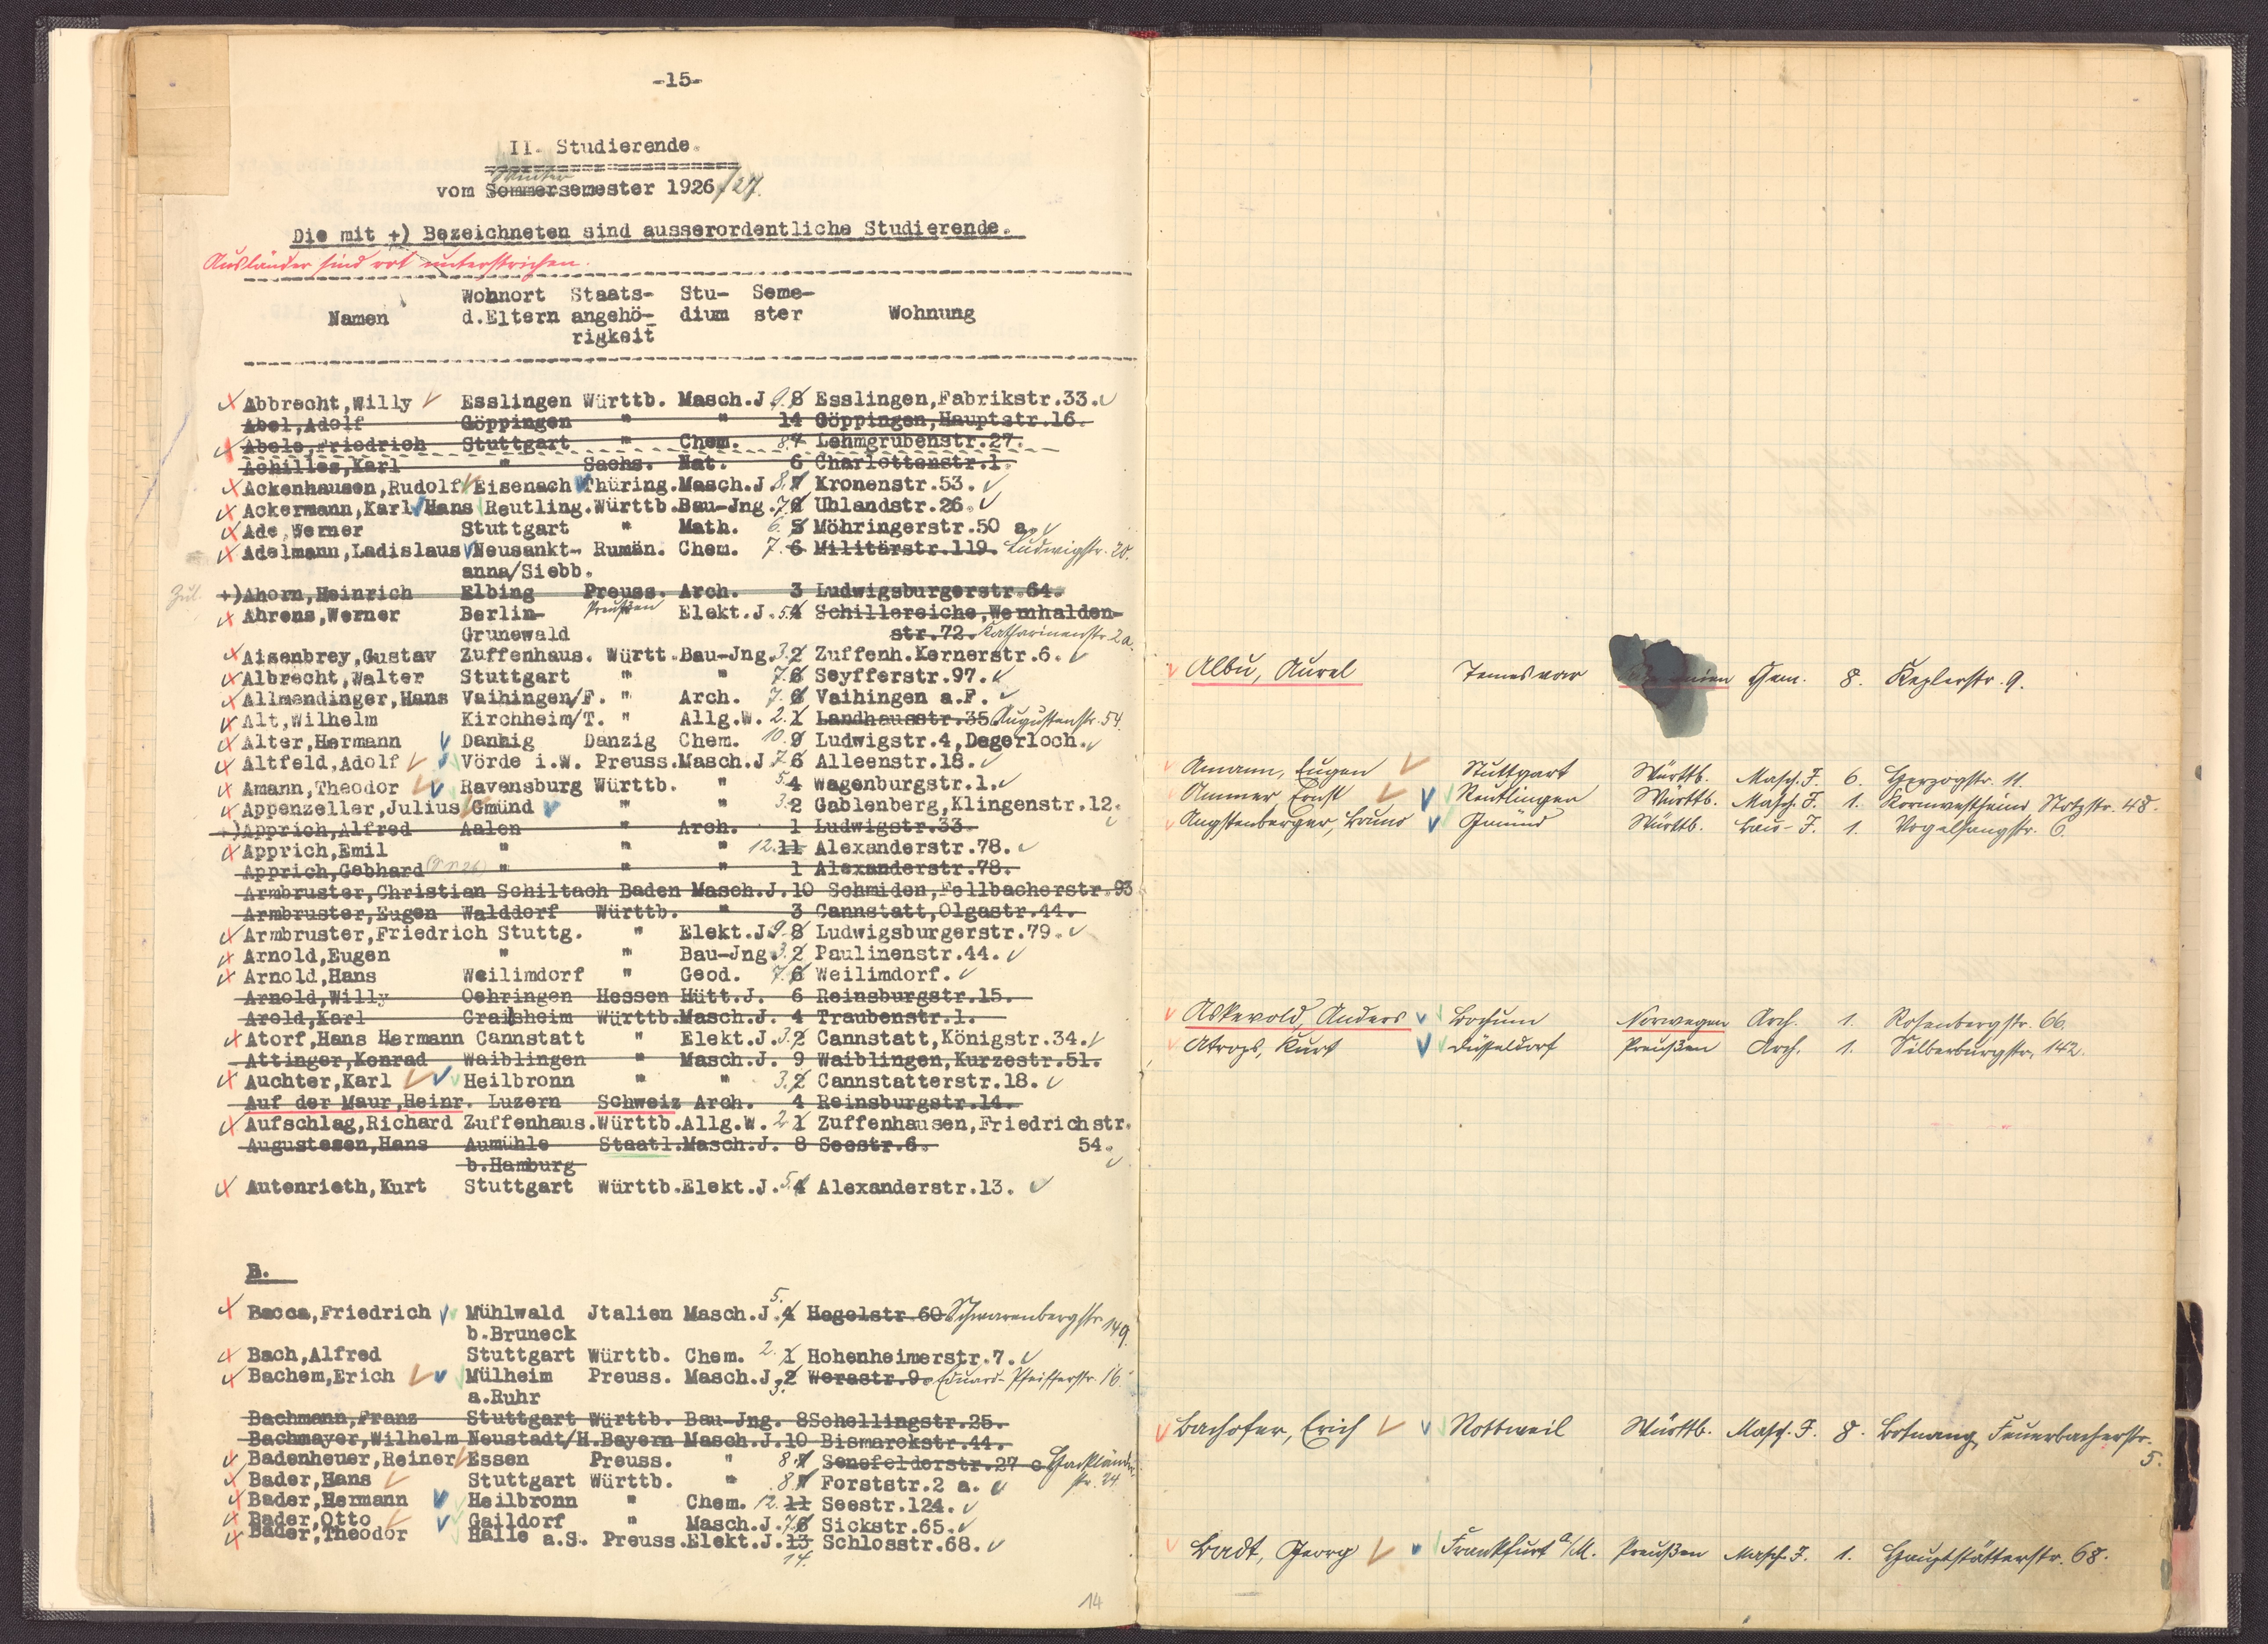 -15-
II. Studierende.
Winter
vom Sommersemester 1926/27.
Die mit +) Bezeichneten sind ausserordentliche Studierende.
Ausländer sind rot unterstrichen.
Wohnort Staats- Stu- Seme-
Namen d.Eltern angehö- dium ster Wohnung
rigkeit
Abbrecht,Willy Esslingen Württb. Masch.J. 9. 8 Esslingen,Fabrikstr.33.
Abel,Adolf Göppingen " " 14 Göppingen,Hauptstr.16.
Abele,Friedrich Stuttgart " Chem. 8. 7 Lehmgrubenstr.27.
Achilles,Karl " Sachs. Nat. 6 Charlottenstr.1.
Ackenhausen,Rudolf Eisenach Thüring.Masch.J. 8. 7 Kronenstr.53.
Ackermann,Karl Hans Reutling.Württb.Bau-Jng. 7. 6 Uhlandstr.26.
Ade,Werner Stuttgart " Math. 6. 5 Möhringerstr.50 a.
Adelmann,Ladislaus Neusankt- Rumän. Chem. 7. 6 Militärstr.119. Ludwigstr. 20.
anna/Siebb.
Zul. +)Ahorn,Heinrich Elbing Preuss. Arch. 3 Ludwigsburgerstr.64.
Ahrens,Werner Berlin- Preußen Elekt.J. 5. 4 Schillereiche,Wernhalden-
Grunewald str.72. Katharinenstr. 2a.
Aisenbrey,Gustav Zuffenhaus. Württ.Bau-Jng. 3. 2 Zuffenh.Kernerstr.6.
Albrecht,Walter Stuttgart " " 7. 6 Seyfferstr.97.
Allmendinger,Hans Vaihingen/F. " Arch. 7. 6 Vaihingen a.F.
Alt,Wilhelm Kirchheim/T. " Allg.W. 2. 1 Landhausstr.35 Augustenstr. 54
Alter,Hermann Danhig Danzig Chem. 10. 9 Ludwigstr.4,Degerloch.
Altfeld,Adolf Vörde i.W. Preuss.Masch.J 7. 6 Alleenstr.18.
Amann,Theodor Ravensburg Württb. " 5. 4 Wagenburgstr.1.
Appenzeller,Julius Gmünd " " 3. 2 Gablenberg,Klingenstr.12.
+)Apprich,Alfred Aalen " Arch. 1 Ludwigstr.33.
Apprich,Emil " " " 12. 11 Alexanderstr.78.
Apprich,Gebhard " " " 1 Alexanderstr.78.
Armbruster,Christian Schiltach Baden Masch.J. 10 Schmiden,Fellbacherstr.93
Armbruster,Eugen Walddorf Württb. " 3 Cannstatt,Olgastr.44.
Armbruster,Friedrich Stuttg. " Elekt.J. 9. 8 Ludwigsburgerstr.79.
Arnold,Eugen " " Bau-Jng. 3. 2 Paulinenstr.44.
Arnold,Hans Weilimdorf " Geod. 7. 6 Weilimdorf.
Arnold,Willy Oehringen Hessen Hütt.J. 6 Reinsburgstr.15.
Arold,Karl Crailsheim Württb.Masch.J. 4 Traubenstr.1.
Atorf,Hans Hermann Cannstatt " Elekt.J. 3. 2 Cannstatt,Königstr.34.
Attinger,Konrad Waiblingen " Masch.J. 9 Waiblingen,Kurzestr.51.
Auchter,Karl Heilbronn " " 3. 2 Cannstatterstr.18.
Auf der Maur,Heinr. Luzern Schweiz Arch. 4 Reinsburgstr.14.
Aufschlag,Richard Zuffenhaus.Württb.Allg.W. 2. 1 Zuffenhausen,Friedrichstr.
Augustesen,Hans Aumühle Staatl.Masch.J. 8 Seestr.6. 54.
b.Hamburg
Autenrieth,Kurt Stuttgart Württb.Elekt.J. 5. 4 Alexanderstr.13.
B.
Bacca,Friedrich Mühlwald Jtalien Masch.J. 5. 4 Hegelstr.60 Schwarenbergstr. 149.
b.Bruneck
Bach,Alfred Stuttgart Württb. Chem. 2. 1 Hohenheimerstr.7.
Bachem,Erich Mülheim Preuss. Masch.J. 3. 2 Werastr.9. Eduard-Pfeifferstr. 16.
a.Ruhr
Bachmann,Franz Stuttgart Württb. Bau-Jng. 8 Schellingstr.25.
Bachmayer,Wilhelm Neustadt/H.Bayern Masch.J.10 Bismarckstr.44.
Badenheuer,Reiner Essen Preuss. " 8. 7 Senefelderstr.27 c
Bader,Hans Stuttgart Württb. " 8. 7 Forststr.2 a. str. 24.
Bader,Hermann Heilbronn " Chem. 12. 11 Seestr.124.
Bader,Otto Gaildorf " Masch.J. 7. 6 Sickstr.65.
Bader,Theodor Halle a.S. Preuss.Elekt.J. 13 Schlosstr.68.
14.
14
Albu, Aurel Temesvar Chem. 8. Keplerstr. 9.
Amann, Eugen Stuttgart Württb. Masch. J. 6. Herzogstr. 11.
Ammer, Ernst Reutlingen Württb. Masch. J. 1. Kornwestheim, Stotzstr. 48.
Angstenberger, Bruno Gmünd Württb. Bau-J. 1. Vogelsangstr. 6.
Askevold, Anders Bochum Norwegen Arch. 1. Rosenbergstr. 66.
Atrops, Kurt Düsseldorf Preußen Arch. 1. Silberburgstr. 142.
Bachofer, Erich Rottweil Württb. Masch. J. 8. Botnang, Feuerbacherstr.
5.
Badt, Georg Frankfurt a/M. Preußen Masch. J. 1. Hauptstätterstr. 68.